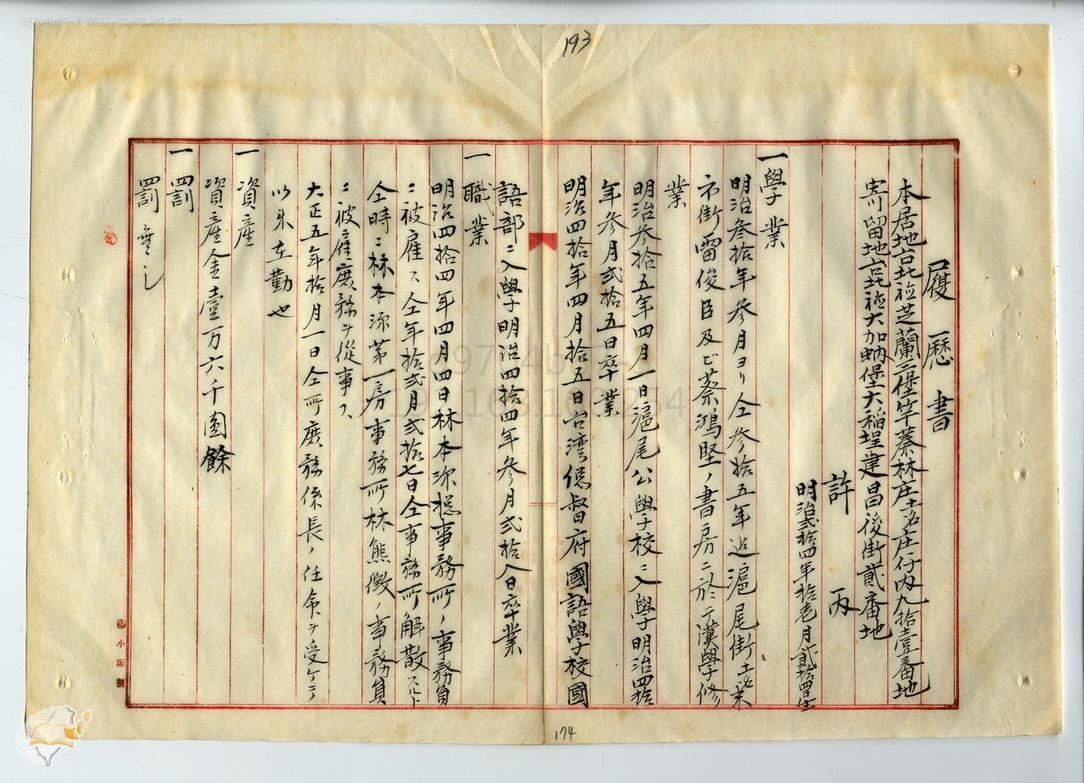 d9704b67-3 2022-02-09 09:51
193
履歷書
本居地台北廳芝蘭三堡竿蓁林庄土名庄仔内九拾壹番地
寄留地台北廳大加蚋堡大稻埕建昌後街貳番地
許丙
明治貳拾四年拾壱月貳拾四日生
一學業
明治叁拾年叁月ヨリ仝叁拾五年迄滬尾街土名米
市街雷俊臣及ビ蔡鴻堅ノ書房ニ於テ漢學修
業
明治叁拾五年四月一日滬尾公學校ニ入學明治四拾
年叁月貳拾五日卒業
明治四拾年四月拾五日台湾總督府國語學校國
語部ニ入學明治四拾四年叁月貳拾八日卒業
一職業
明治四拾四年四月四日林本源總事務所ノ事務員
ニ被雇ス仝年拾貳月貳拾七日仝事務所解散スルト
仝時ニ林本源第一房事務所林熊徴ノ事務員
ニ被雇庶務ヲ從事ス
大正五年拾月一日仝所庶務係長ノ任命ヲ受ケテ
以来在勤也
一資産
資産金壹万六千圓餘
一罰
罰無之
小塚製
174